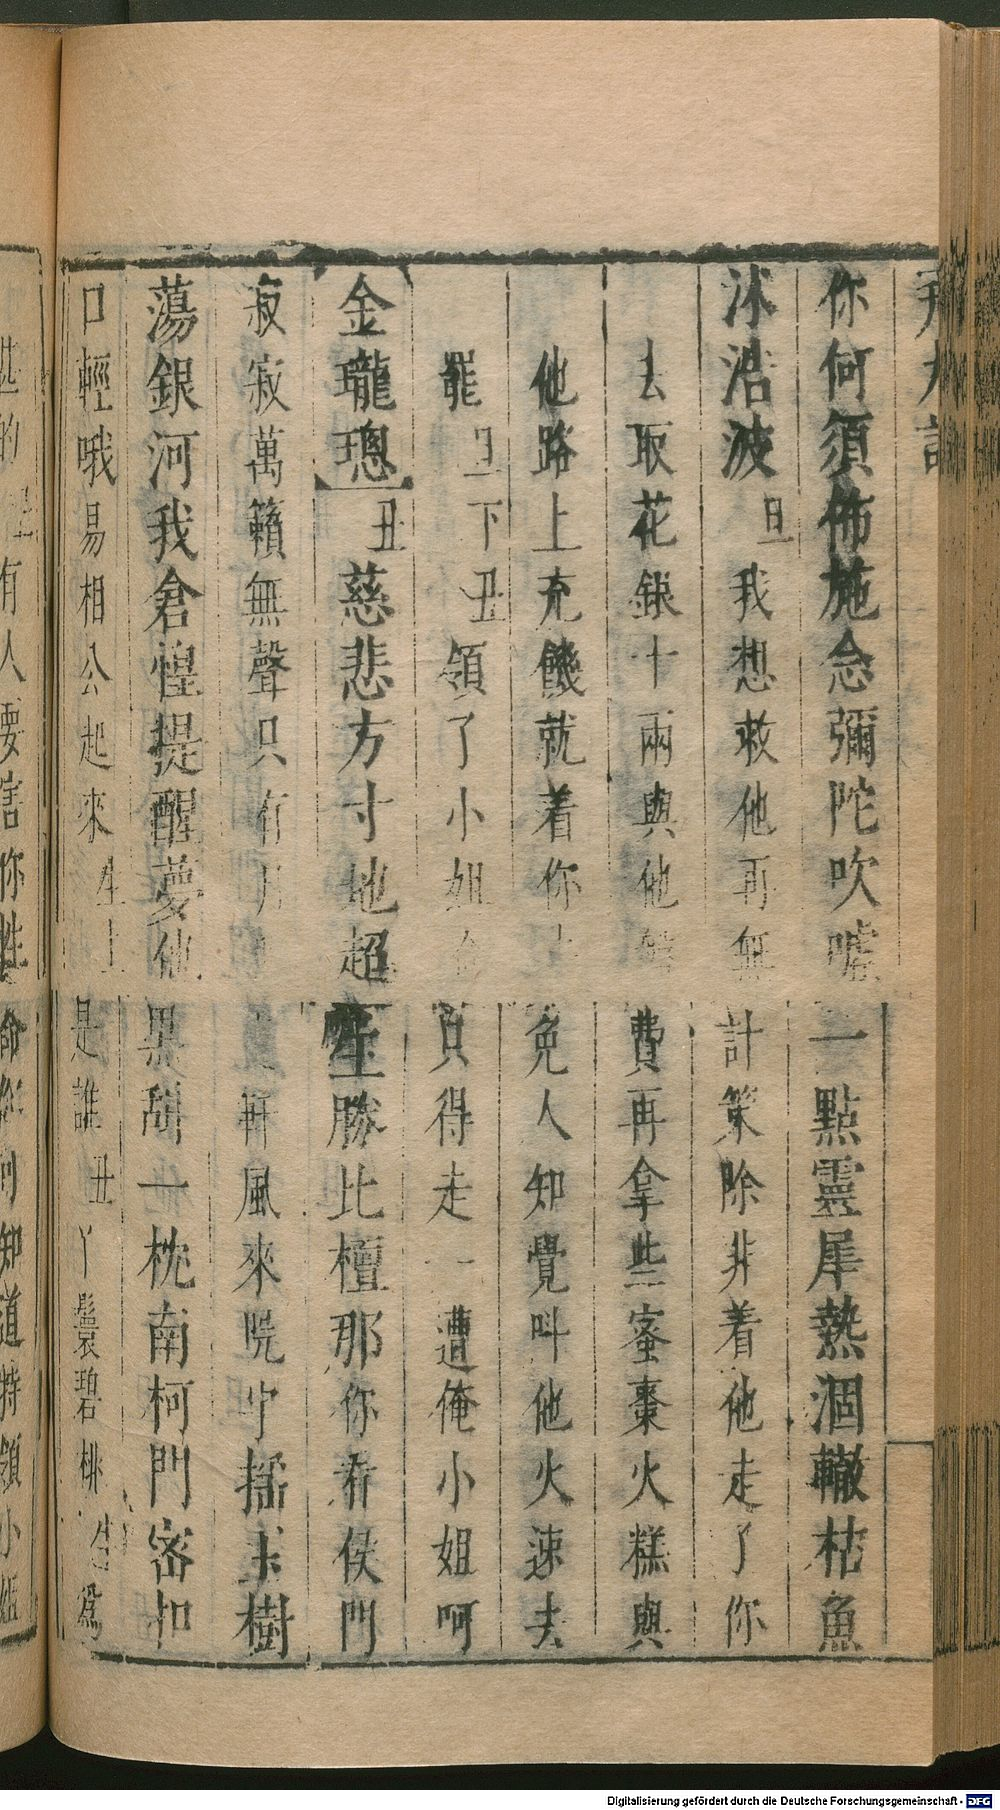 你何須佈施念彌陀吹噓一點靈犀熱涸轍枯魚
沐浩波 旦 我想救他再無計策除非着他走了你
去取花銀十兩與他 費再拿些蜜棗火糕與
他路上充饑就着你 免人知覺呌他火速去
罷 旦下 丑 領了小姐 只得走一遭俺小姐呵
金瓏璁 丑 慈悲方寸地超 勝比檀那你看侯門
寂寂萬籟無聲只有月 軒風來 揺玉樹
蕩銀河我倉惶提醒夢他黑甜一枕南柯門宻扣
口輕哦易相公起來 生上 是誰 丑 丫鬟碧桃 生 爲
有人要 你性命 你可知道特領小姐
Digitalisierung gefördert durch die Deutsche Forschungsgemeinschaft - DFG